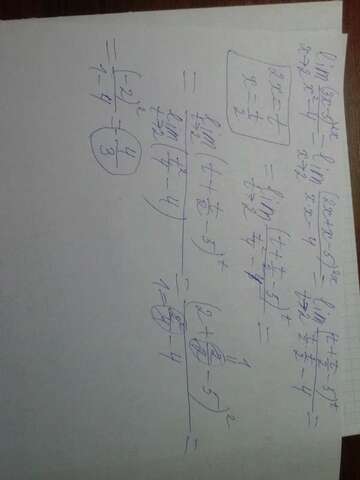 lim x→2 (3x-5)^2x / x²-4 = lim x→2 (2x+x-5)^2x / x·x-4 = lim t→2 (t+t/2-5)^t / t/2·t/2-4 =
2x=t
x=t/2
= lim t→2 (t+t/2-5)^t / t²/4-4 =
= lim t→2 (t+t/2-5)^t / lim t→2 (t²/4-4) = (2+2/2-5)² / 2²/4-4 =
= (-2)² / 1-4 = -4/3